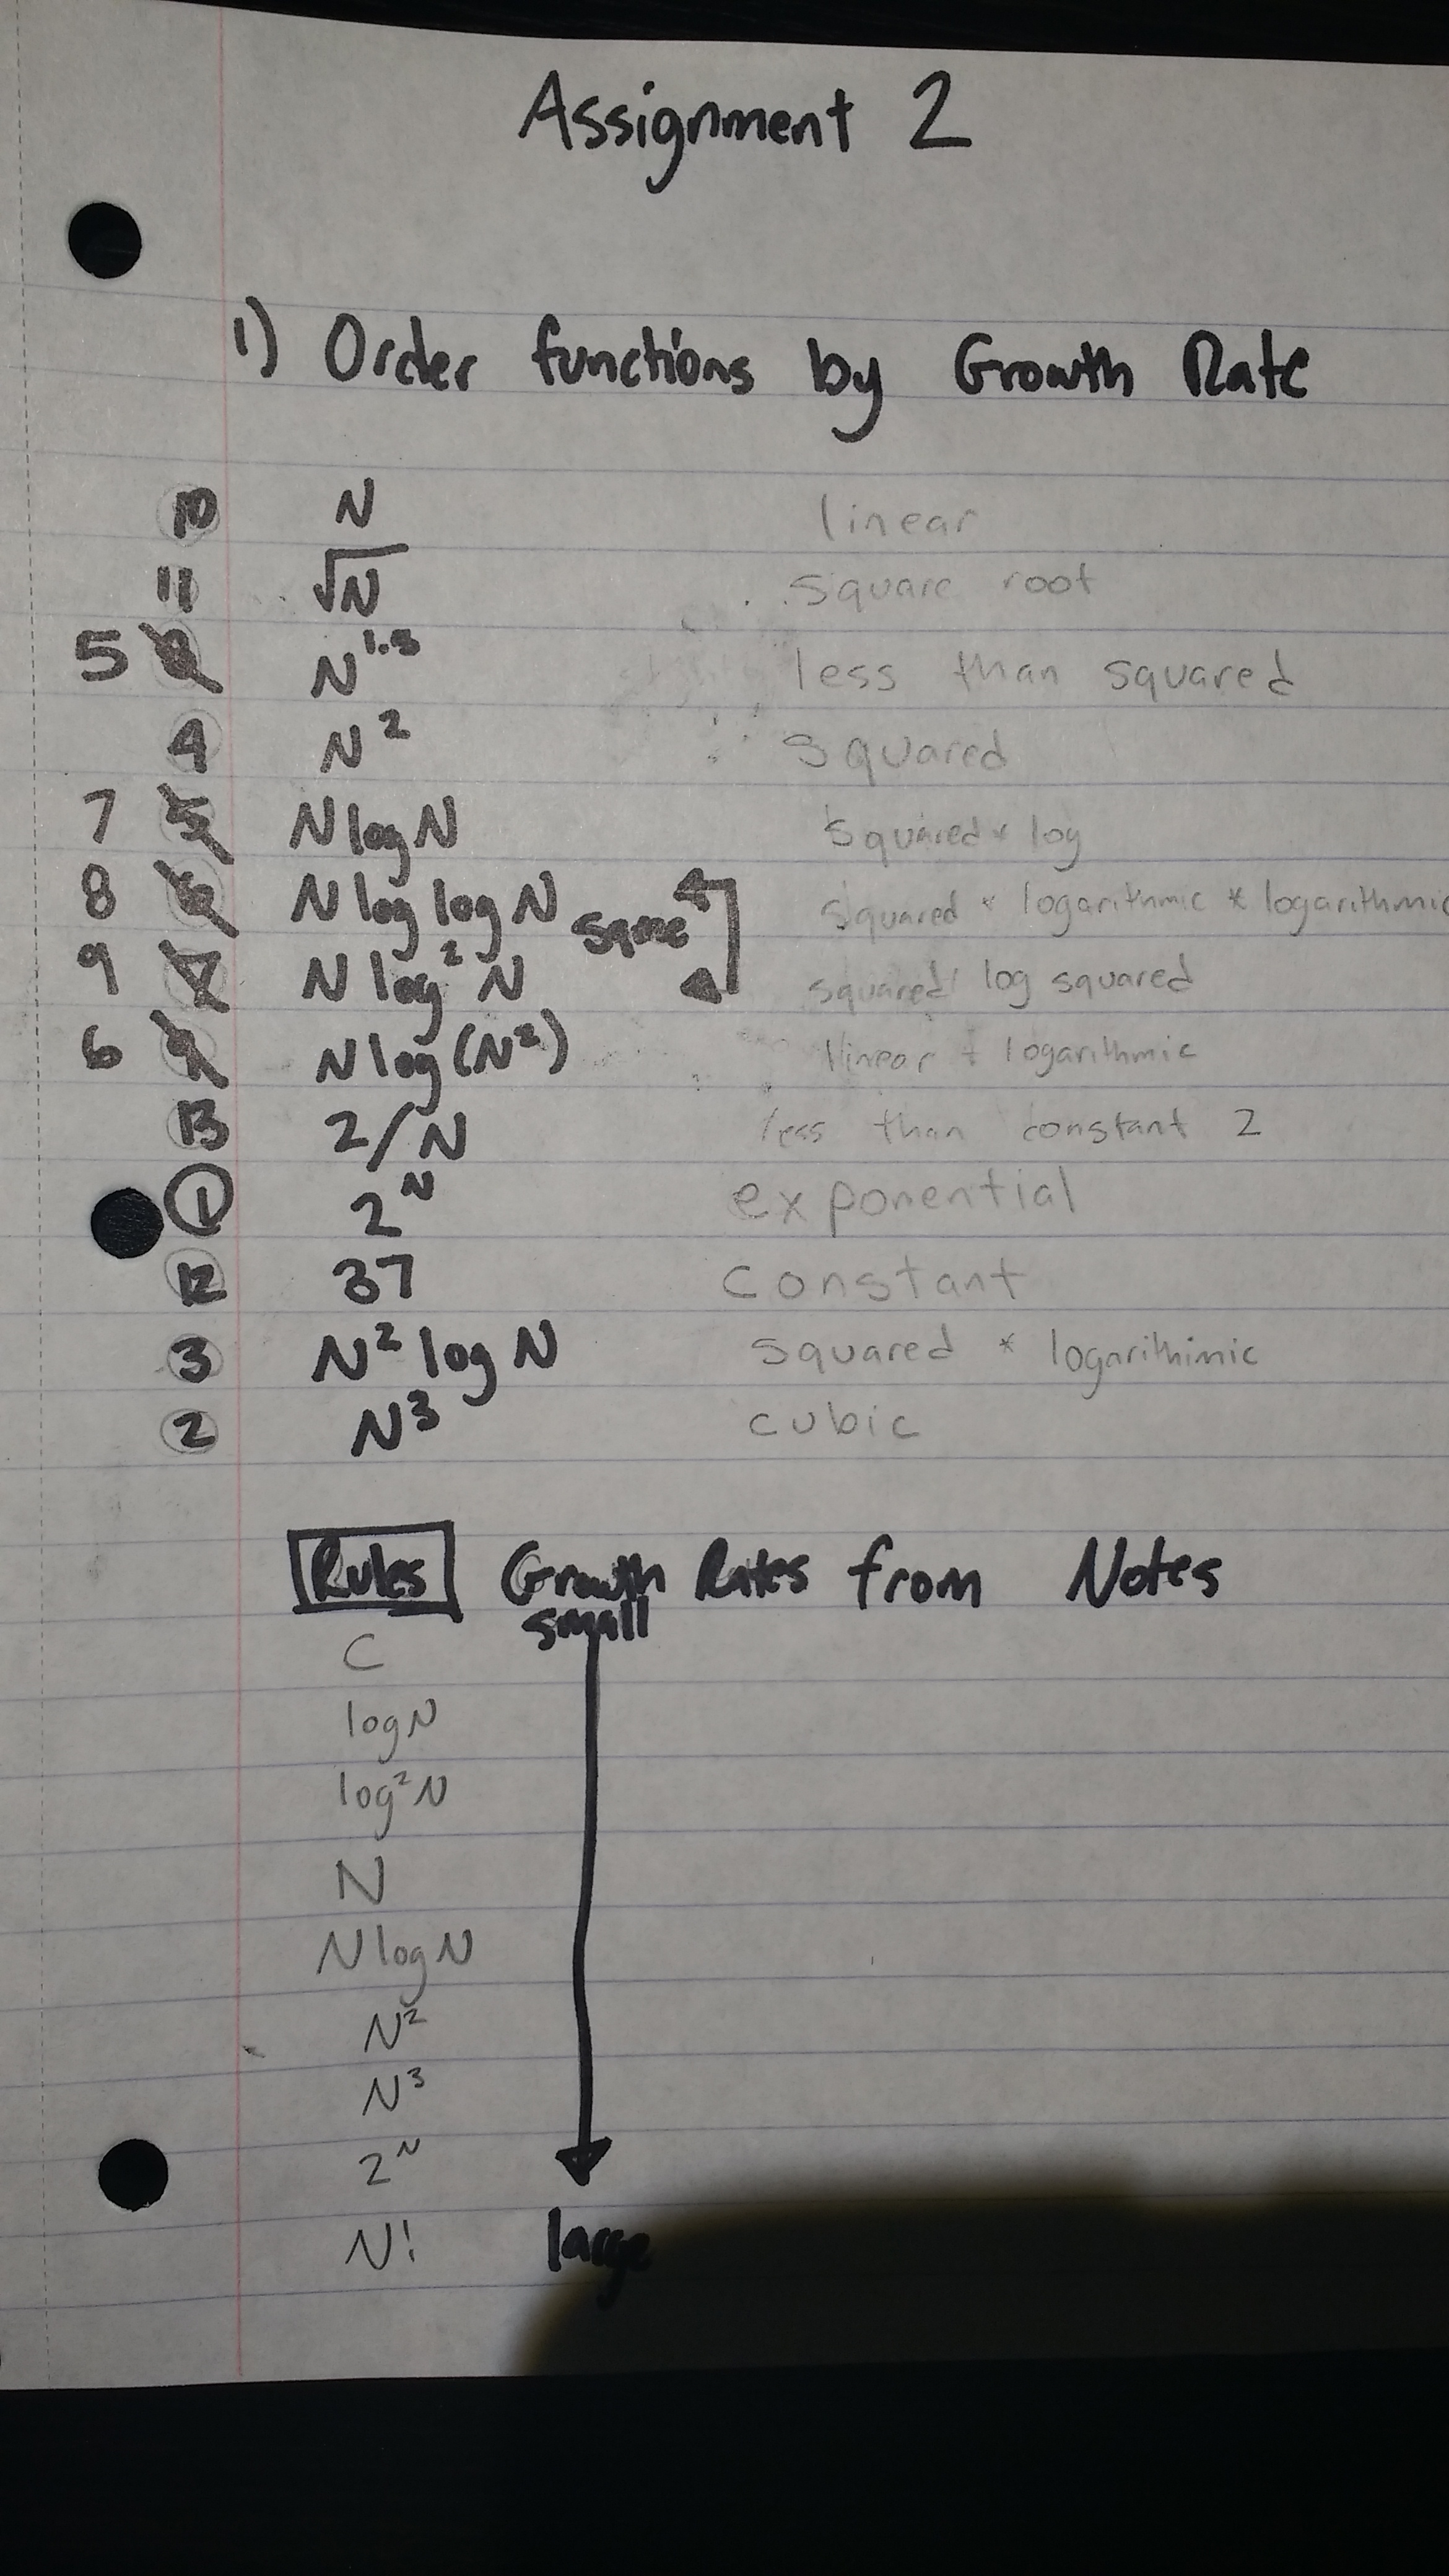 Assignment 2
1) Order functions by Growth Rate
10 N linear
11 √N square root
5 N^1.5 less than squared
4 N² squared
7 N log N squared * log
8 N log log N same squared * logarithmic * logarithmic
9 N log² N squared log squared
6 N log (N²) linear + logarithmic
13 2/N less than constant 2
1 2^N exponential
12 37 constant
3 N² log N squared * logarithimic
2 N³ cubic
Rules Growth Rates from Notes
small
C
log N
log² N
N
N log N
N²
N³
2^N
N! large